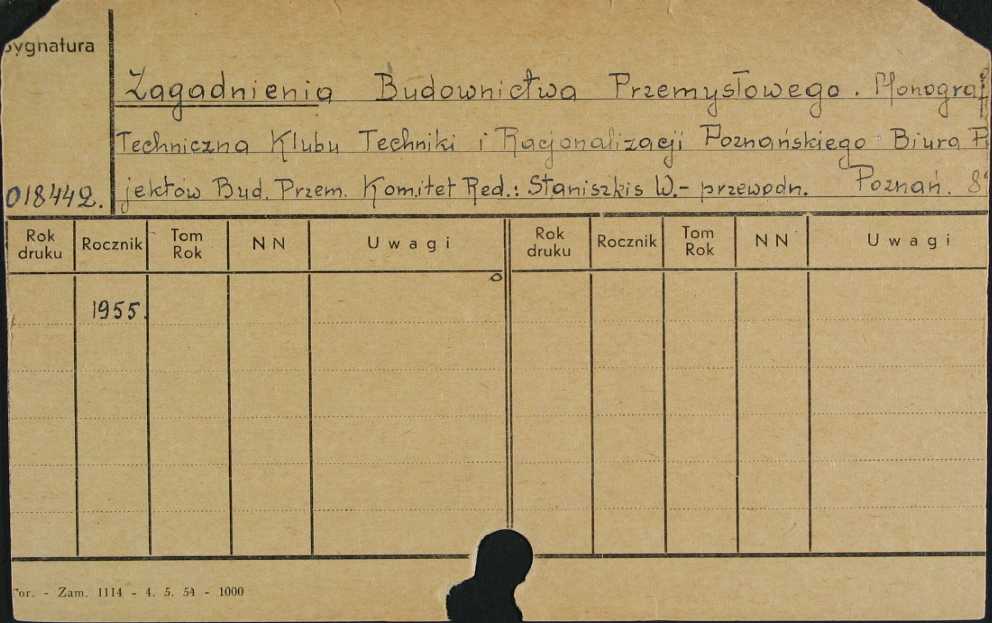 Sygnatura
Zagadnienia Budownictwa Przemysłowego. Monograf
Techniczna Klubu Techniki i Racjonalizacji Poznańskiego Biura
018442. jektów Bud. Przem. Komitet Red.: Staniszkis W.- przewodn. Poznań. 8°
Rok druku Rocznik Tom Rok NN Uwagi Rok druku Rocznik Tom Rok NN Uwagi
1955.
- Zam. 1114 - 4. 5. 54 - 1000